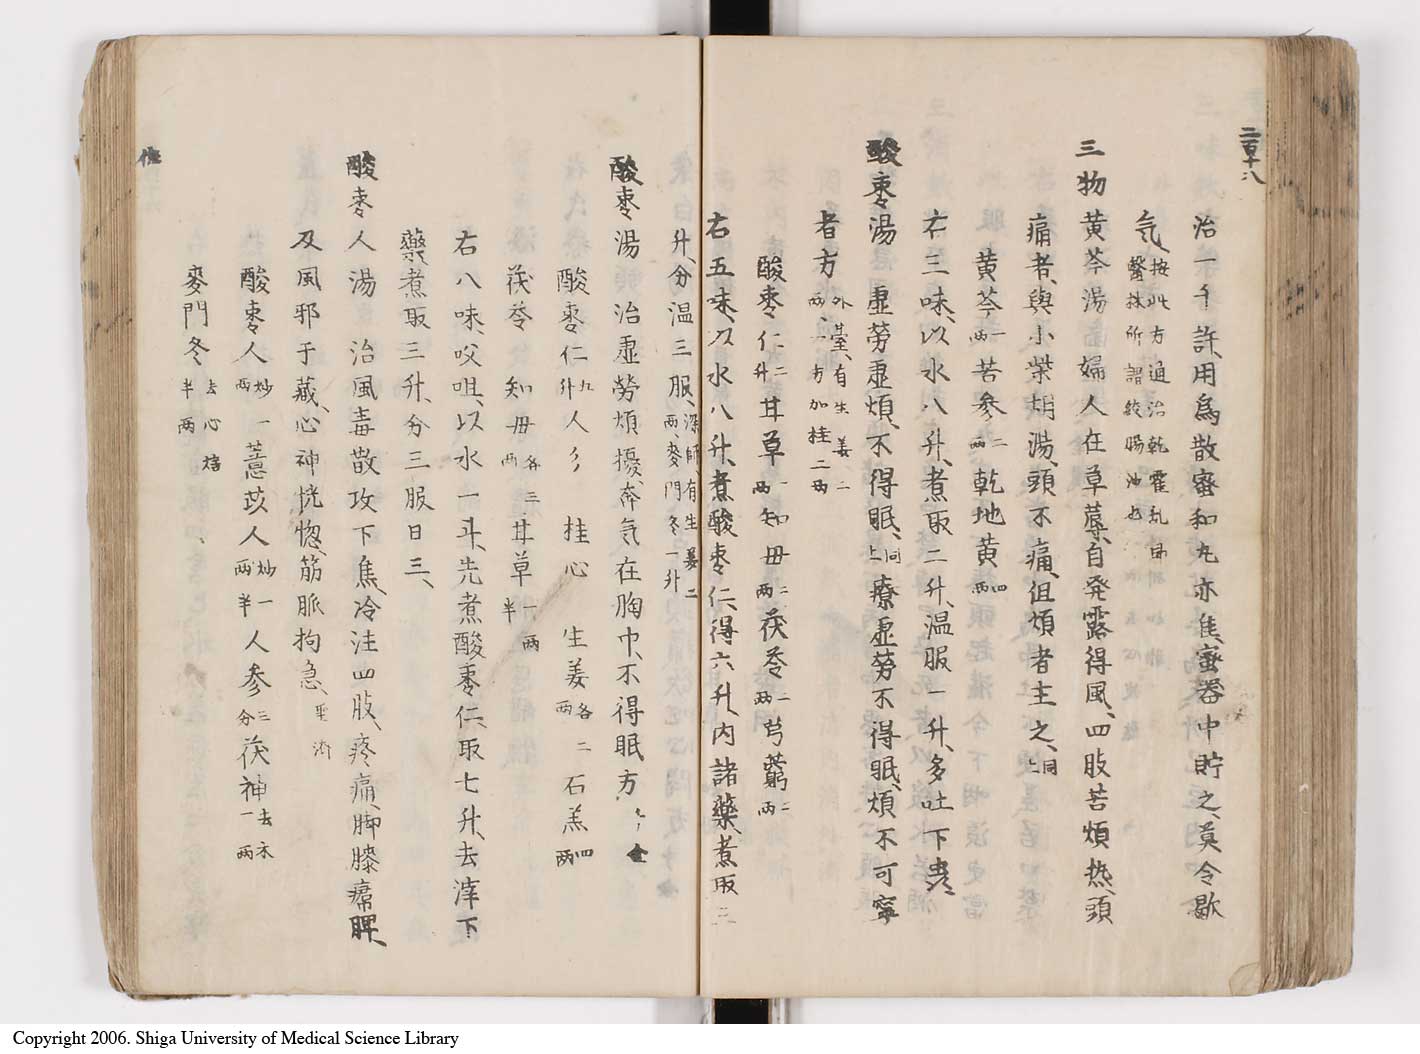 二百十八
治一千許、用爲散蜜和丸亦佳、蜜器中貯之莫令歇
气、按此方通治乾霍乱即
醫抹所謂絞腸沙也
三物黄芩湯婦人在草蓐、自発露得風、四肢苦煩热、頭
痛者、與小柴胡湯、頭不痛、但煩者主之、同上
黄芩一両苦参二両乾地黄四両
右三味、以水八升、煮取二升、温服一升、多吐下虫、
酸棗湯虚労虚煩、不得眠、同上療虚労不得眠、煩不可寧
者方外臺、有生姜二両、一方加桂二両
酸棗仁二升甘草一両知母二両茯苓二両芎藭二両
右五味、以水八升、煮酸棗仁、得六升、内諸藥、煮取三
升、分温三服、深師、有生姜二両、麥門冬一升
酸棗湯治虚労煩擾、奔気在胸中、不得眠方
酸棗仁九升人参 桂心 生姜各二両石羔四両
茯苓 知母各三両甘草一両半
右八味、㕮咀、以水一斗、先煮酸棗仁、取七升、去滓下
藥、煮取三升、分三服日三、
酸棗人湯治風毒散攻下焦、冷注四肢、疼痛、脚膝痛
及風邪于藏、心神恍惚、筋脈拘急、聖済
酸棗人炒一両薏苡人炒一両半人参三分茯神去木一両
麥門冬去心焙半両